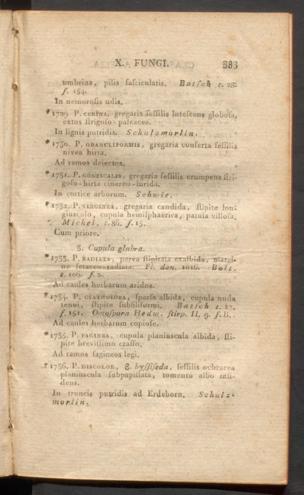 X. FUNGI. 383
umbrina, pilis fasciculatis. Batsch t. 28.
f. 154.
In nemorosis udis.
* 1729. P. gregaria sessilis lutescens globosa,
extus strigoso-paleacea.
In lignis putridis. Schulzmorlin.
* 1730. P. gregaria conferta sessilis
nivea hirta.
Ad ramos dejectos.
* 1731. P. gregaria sessilis erumpens stri-
goso-hirta cinereo-lurida.
In cortice arborum. Schwir.
* 1732. P. VIRGINEA, gregaria candida, stipite lon-
giusculo, cupula hemisphaerica, patula villosa.
Michel. t. 86. f. 15.
Cum priore.
3. Cupula glabra.
* 1733. P. RADIATA, parva stipitata exalbida, margi-
ne setaceo-radiato. Fl. dan. Bolt.
t. f. 2.
Ad caules herbarum aridos.
* 1734. P. CYATHOIDEA, sparsa albida, cupula nuda
tenui, stipite subfiliformi. Batsch t.
f. 151. Octospora Hedw. stirp. II. f. B.
Ad caules herbarum copiose.
* 1735. P. FAGINEA, cupula planiuscula albida, sti-
pite brevissimo crasso.
Ad ramos fagineos legi.
* 1736. P. DISCOLOR, byssiseda, sessilis ochracea
planiuscula subpapillata, tomento albo insi-
dens.
In truncis putridis ad Erdeborn. Schulz-
morlin.